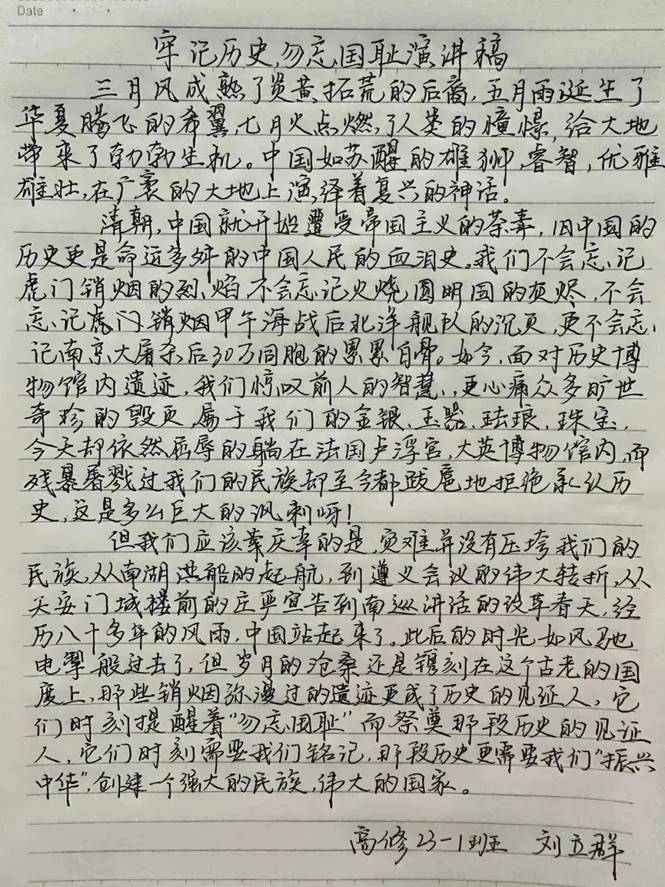 Date
牢记历史,勿忘国耻演讲稿
三月风成熟了炎黄拓荒的后裔,五月雨诞生了
华夏腾飞的希翼,七月火点燃了人类的憧憬,给大地
带来了勃勃生机。中国如苏醒的雄狮,睿智,优雅
雄壮,在广袤的大地上演绎着复兴的神话。
清朝,中国就开始遭受帝国主义的荼毒,旧中国的
历史更是命运多舛的中国人民的血泪史。我们不会忘记
虎门销烟的烈焰,不会忘记火烧圆明园的灰烬,不会
忘记虎门销烟甲午海战后北洋舰队的沉没,更不会忘
记南京大屠杀后30万同胞的累累白骨。如今,面对历史博
物馆内遗迹,我们惊叹前人的智慧,更心痛众多旷世
奇珍的毁灭,属于我们的金银、玉器、珐琅、珠宝,
今天却依然屈辱的躺在法国卢浮宫,大英博物馆内,而
残暴屠戮过我们的民族却至今都跋扈地拒绝承认历
史,这是多么巨大的讽刺呀!
但我们应该庆幸的是,灾难并没有压垮我们的
民族,从南湖洪船的起航,到遵义会议的伟大转折,从
天安门城楼前的庄严宣告到南巡讲话的改革春天,经
历八十多年的风雨,中国站起来了。此后的时光如风驰
电掣般过去了,但岁月的沧桑还是镌刻在这个古老的国
度上,那些销烟弥漫过的遗迹更成了历史的见证人,它
们时刻提醒着“勿忘国耻”而祭奠那段历史的见证
人,它们时刻需要我们铭记,那段历史更需要我们“振兴
中华”,创建一个强大的民族,伟大的国家。
高修23-1班 刘立群